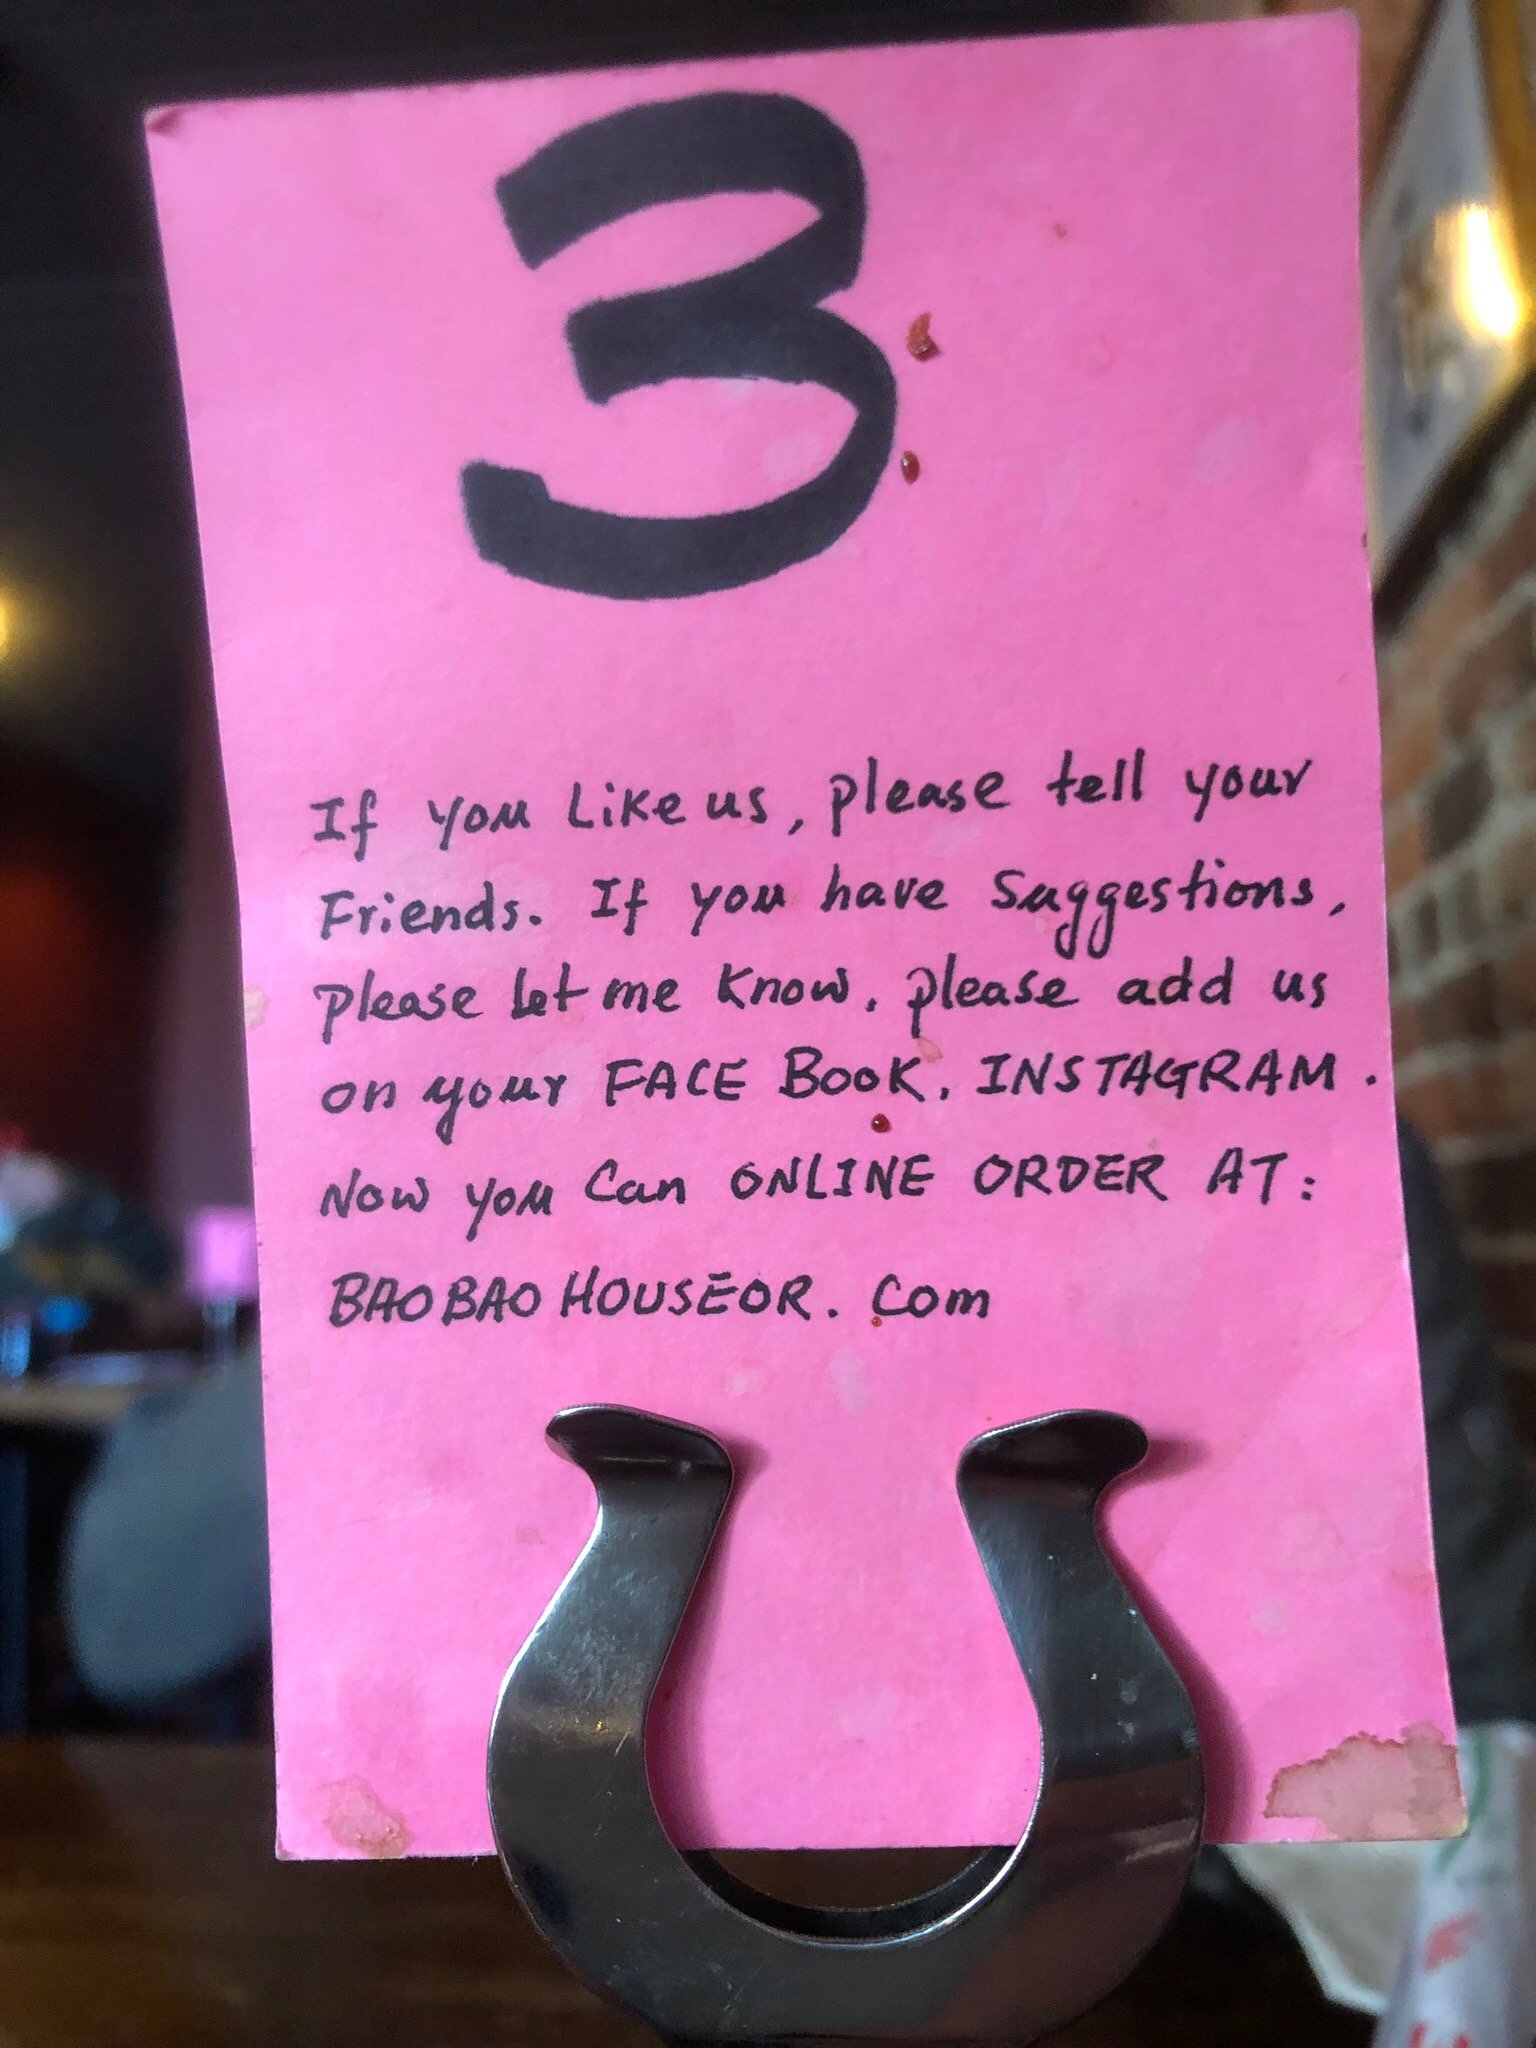 3
If you Like us, please tell your
Friends. If you have Suggestions,
please let me know. please add us
on your FACE BooK, INSTAGRAM.
Now you Can ONLINE ORDER AT:
BAOBAO HOUSEOR. Com